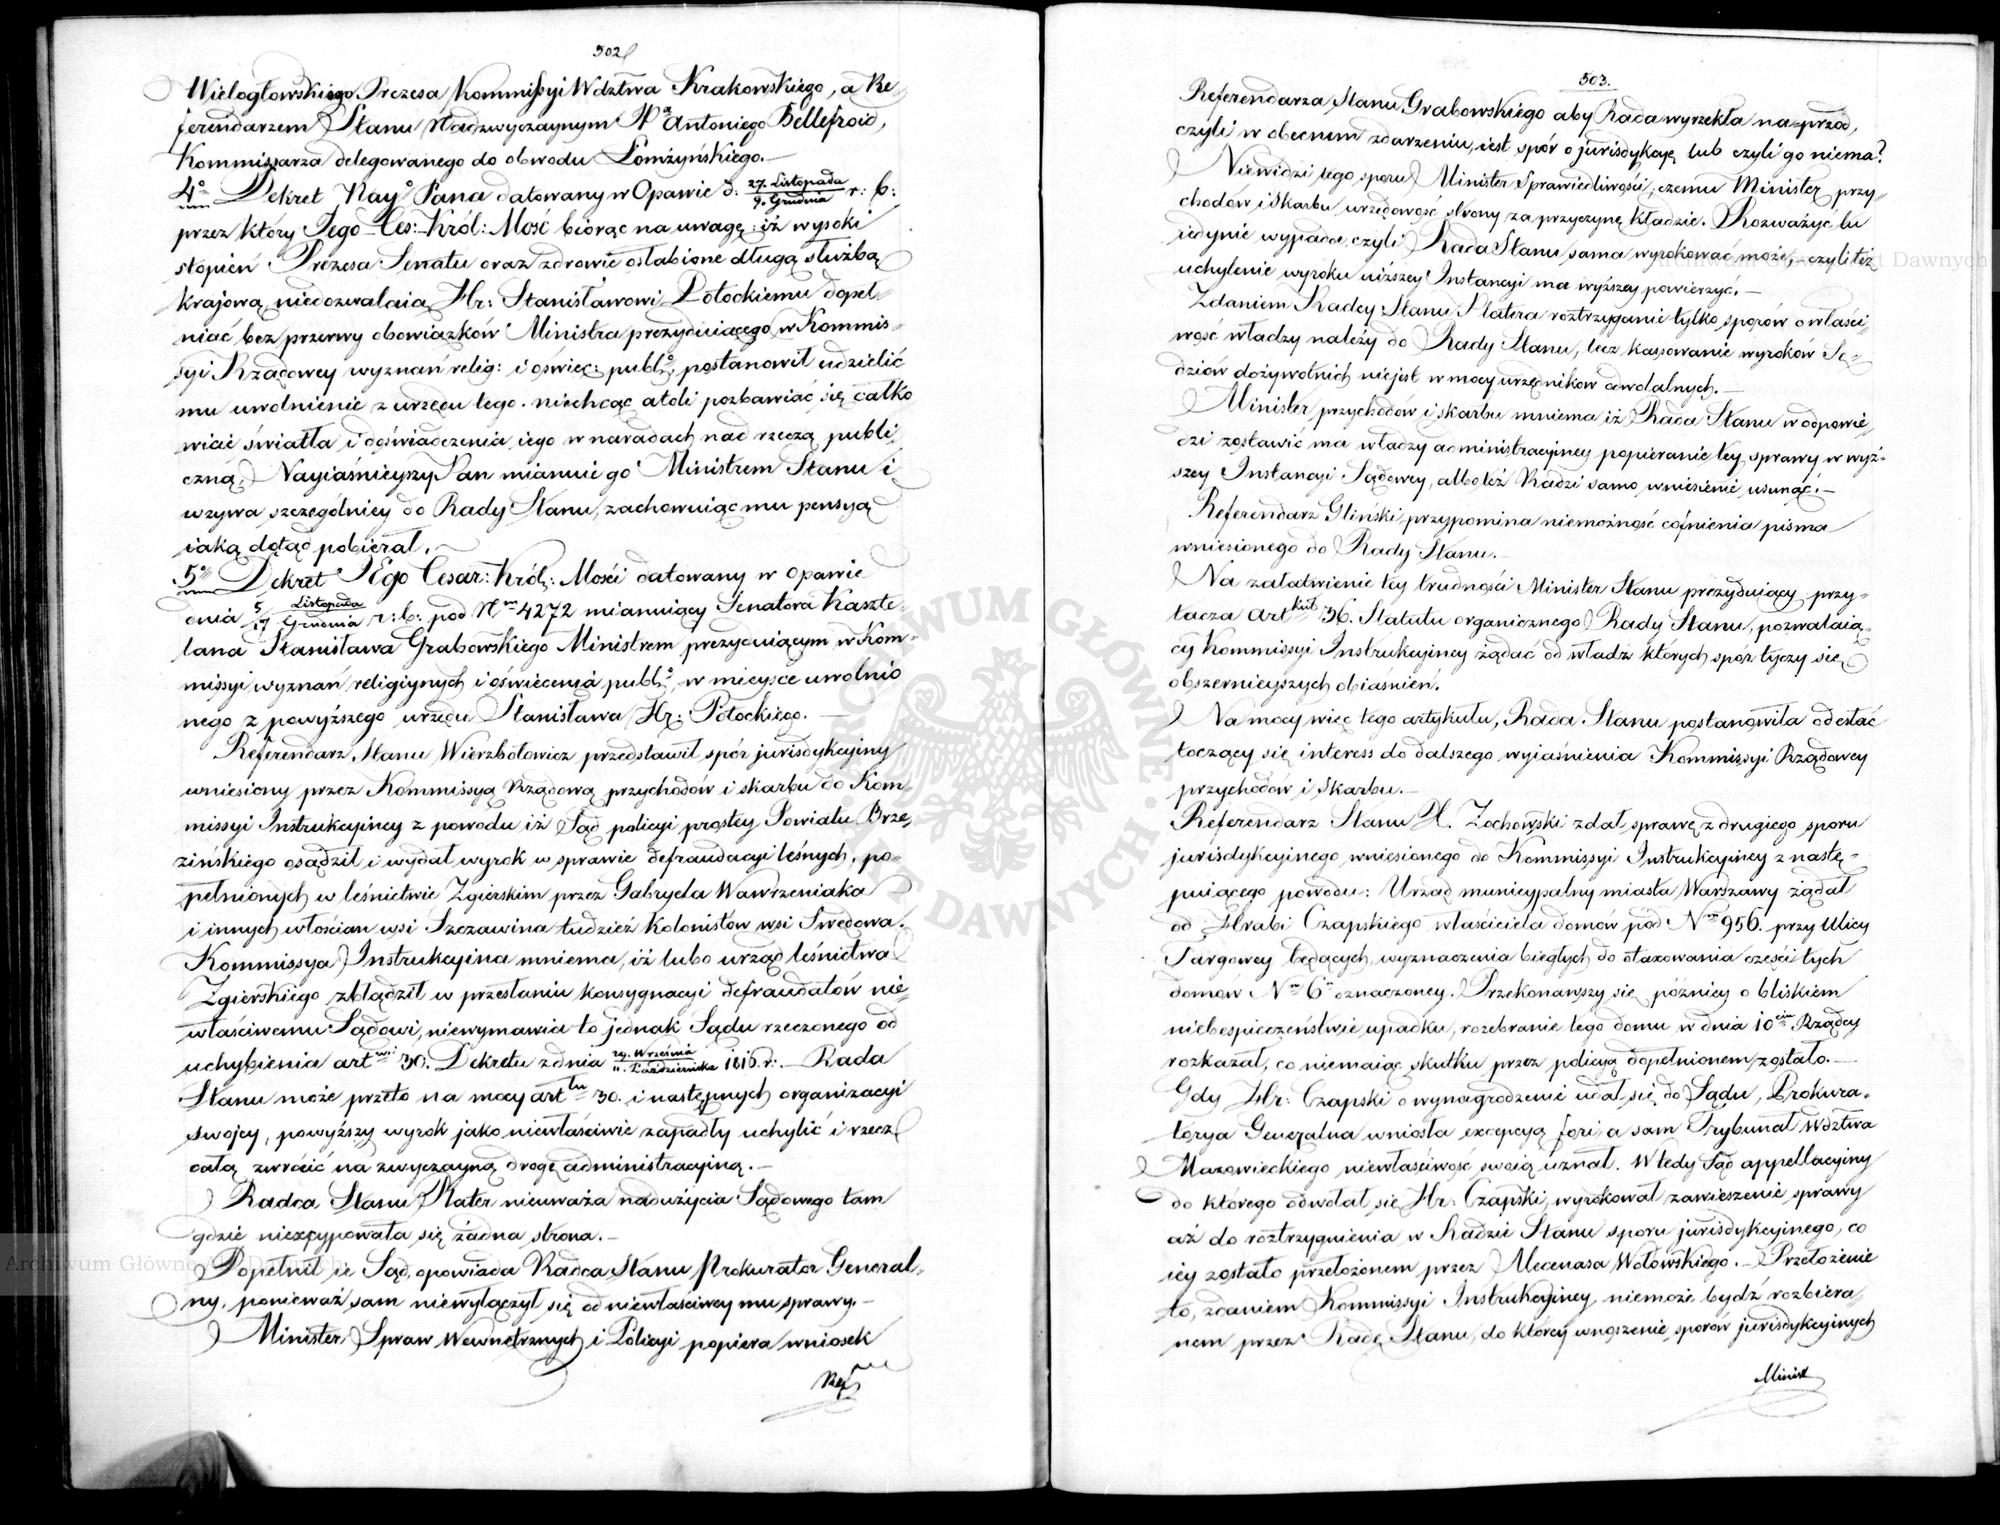 502
Wielogłowskiego Prezesa Kommissyi Wdztwa Krakowskiego, a Re-
ferendarzem Stanu Nadzwyczaynym Pa Antoniego Bellefroid,
Kommissarza delegowanego do obwodu Łomżyńskiego.—
4o Dekret Nayo Pana datowany w Opawie d: 27. Listopada / 9. Grudnia r: b:
przez który Jego Ces:-Król: Mość biorąc na uwagę: iż wysoki
stopień Prezesa Senatu oraz zdrowie osłabione długą służbą
krajową, niedozwalaią Hr: Stanisławowi Potockiemu dopeł-
niać bez przerwy obowiązków Ministra prezyduiącego w Kommis-
syi Rządowey wyznań relig: i oświec: publ:o, postanowił udzielić
mu uwolnienie z urzędu tego. niechcąc atoli pozbawiać się całko
wicie światła i doświadczenia iego w naradach nad rzeczą publi-
czną, Nayiaśnieyszy Pan mianuie go Ministrem Stanu i
wzywa szczególniey do Rady Stanu, zachowuiąc mu pensyą
iaką dotąd pobierał.—
5o Dekret JEgo Cesar: Król: Mości datowany w Opawie
dnia 5/17 Listopada / Grudnia r: b: pod Nm 4272 mianuiący Senatora Kaszte-
lana Stanisława Grabowskiego Ministrem prezyduiącym w Kom-
missyi wyznań religiynych i oświecenia publ:o, w mieysce uwolnio
nego z powyższego urzędu Stanisława Hr: Potockiego.—
Referendarz Stanu Wierzbołowicz przedstawił spór jurisdykcyiny
wniesiony przez Kommissyą Rządową przychodów i skarbu do Kom-
missyi Instrukcyiney z powodu iż Sąd policyi prostey Powiatu Brze-
zińskiego osądził i wydał wyrok w sprawie defraudacyi leśnych, po-
pełnionych w leśnictwie Zgierskim przez Gabryela Wawrzeniaka
i innych włościan wsi Szczawina tudzież kolonistów wsi Swędowa.
Kommissya Instrukcyina mniema, iż lubo urząd leśnictwa
Zgierskiego zbłądził w przesłaniu konsygnacyi defraudatów nie-
właściwemu Sądowi, niewymawia to jednak Sądu rzeczonego od
uchybienia artwi 30. Dekretu z dnia 29. Września / 11. Października 1816 r:.— Rada
Stanu może przeto na mocy artłu 30. i następnych organizacyi
swojey, powyższy wyrok jako niewłaściwie zapadły uchylić i rzecz
całą zwrócić na zwyczayną drogę administracyiną.—
Radca Stanu Plater nieuważa nadużycia Sądowego tam
gdzie niexcypowała się żadna strona.—
Popełnił ie Sąd, opowiada Radca Stanu Prokurator General-
ny, ponieważ sam niewyłączył się od niewłaściwey mu sprawy.—
Minister Spraw Wewnętrznych i Policyi popiera wniosek
Ref
503.
Referendarza Stanu Grabowskiego aby Rada wyrzekła na-przód,
czyli w obecnem zdarzeniu, iest spór o jurisdykcyę lub czyli go niema?
Niewidzi tego sporu Minister Sprawiedliwości; czemu Minister przy-
chodów i Skarbu urzędowość strony za przyczynę kładzie. Rozważyć tu
iedynie wypada, czyli Rada Stanu sama wyrokować może, czyli też
uchylenie wyroku niższey Instancyi ma wyższey powierzyć.—
Zdaniem Radcy Stanu Platera roztrzyganie tylko sporów o właści-
wość władzy należy do Rady Stanu, lecz kassowanie wyroków Sę-
dziów dożywotnich niejest w mocy urzędników odwołalnych.—
Minister przychodów i skarbu mniema iż Rada Stanu w odpowie-
dzi zostawić ma władzy administracyiney popieranie tey sprawy w wyż-
szey Instancyi Sądowey, albo też Radzi samo wniesienie usunąć.—
Referendarz Gliński przypomina niemożność cofnienia pisma
wniesionego do Rady Stanu.—
Na załatwienie tey trudności Minister Stanu prezyduiący przy-
tacza artkuł 36. Statutu organicznego Rady Stanu, pozwalaią-
cy Kommissyi Instrukcyiney żądać od władz których spór tyczy się
obszernieyszych obiaśnień.
Na mocy więc tego artykułu, Rada Stanu postanowiła odesłać
toczący się interess do dalszego wyiaśnienia Kommissyi Rządowey
przychodów i Skarbu.—
Referendarz Stanu X. Zochowski zdał sprawę z drugiego sporu
jurisdykcyinego wniesionego do Kommissyi Instrukcyiney z nastę-
puiącego powodu: Urząd municypalny miasta Warszawy żądał
od Hrabi Czapskiego właściciela domów pod Nm 956. przy Ulicy
Targowey będących, wyznaczenia biegłych do otaxowania części tych
domów Nm 6m oznaczoney. Przekonawszy się późniey o bliskiem
niebespieczeństwie upadku, rozebranie tego domu w dnia 10ciu Rządcy
rozkazał, co niemaiąc skutku przez policyą dopełnionem zostało.—
Gdy Hr: Czapski o wynagrodzenie udał się do Sądu, Prokura-
torya Generalna wniosła excepcyą fori, a sam Trybunał Wdztwa
Mazowieckiego niewłaściwość swoią uznał. Wtedy Sąd appellacyiny
do którego odwołał się Hr: Czapski, wyrokował zawieszenie sprawy
aż do roztrzygnienia w Radzie Stanu sporu jurisdykcyinego, co
iey zostało przełożonem przez Mecenasa Wołowskiego.— Przełożenie
to, zdaniem Kommissyi Instrukcyiney niemoże bydź rozbiera-
nem przez Radę Stanu, do którey wnoszenie sporów jurisdykcyinych
Minist
ARCHIWUM GŁÓWNE AKT DAWNYCH
Archiwum Główne Akt Dawnych
Archiwum Główne Akt Dawnych